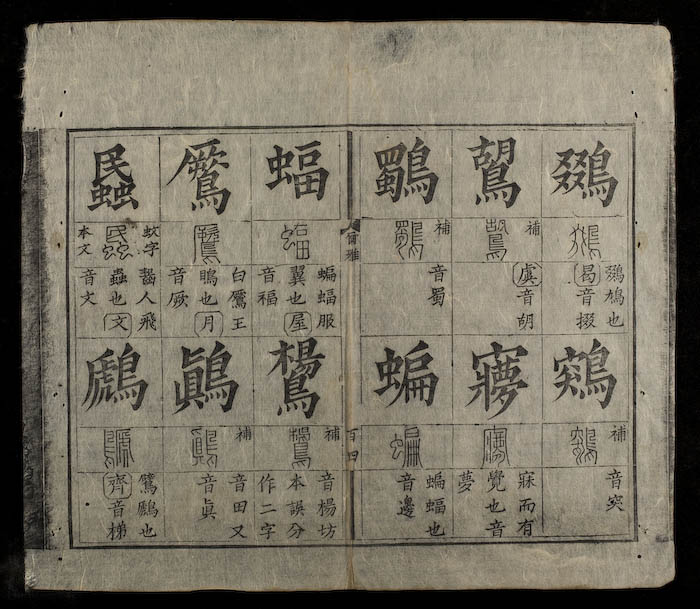 鵽
鵽鳩也
曷音掇
鶟
補
音突
鶘
補
虞音胡
㝱
寐而有
覺也音
夢
鸀
補
音蜀
蝙
蝙蝠也
音邊
爾雅
百四
蝠
蝙蝠服
翼也屋
音福
鸉
補
音楊坊
本誤分
作二字
鷢
白鷢王
鴡也月
音厥
鷏
補
音田又
音眞
䘇
蚊字
本文
齧人飛
蟲也文
音文
鷈
鷿鷈也
齊音梯